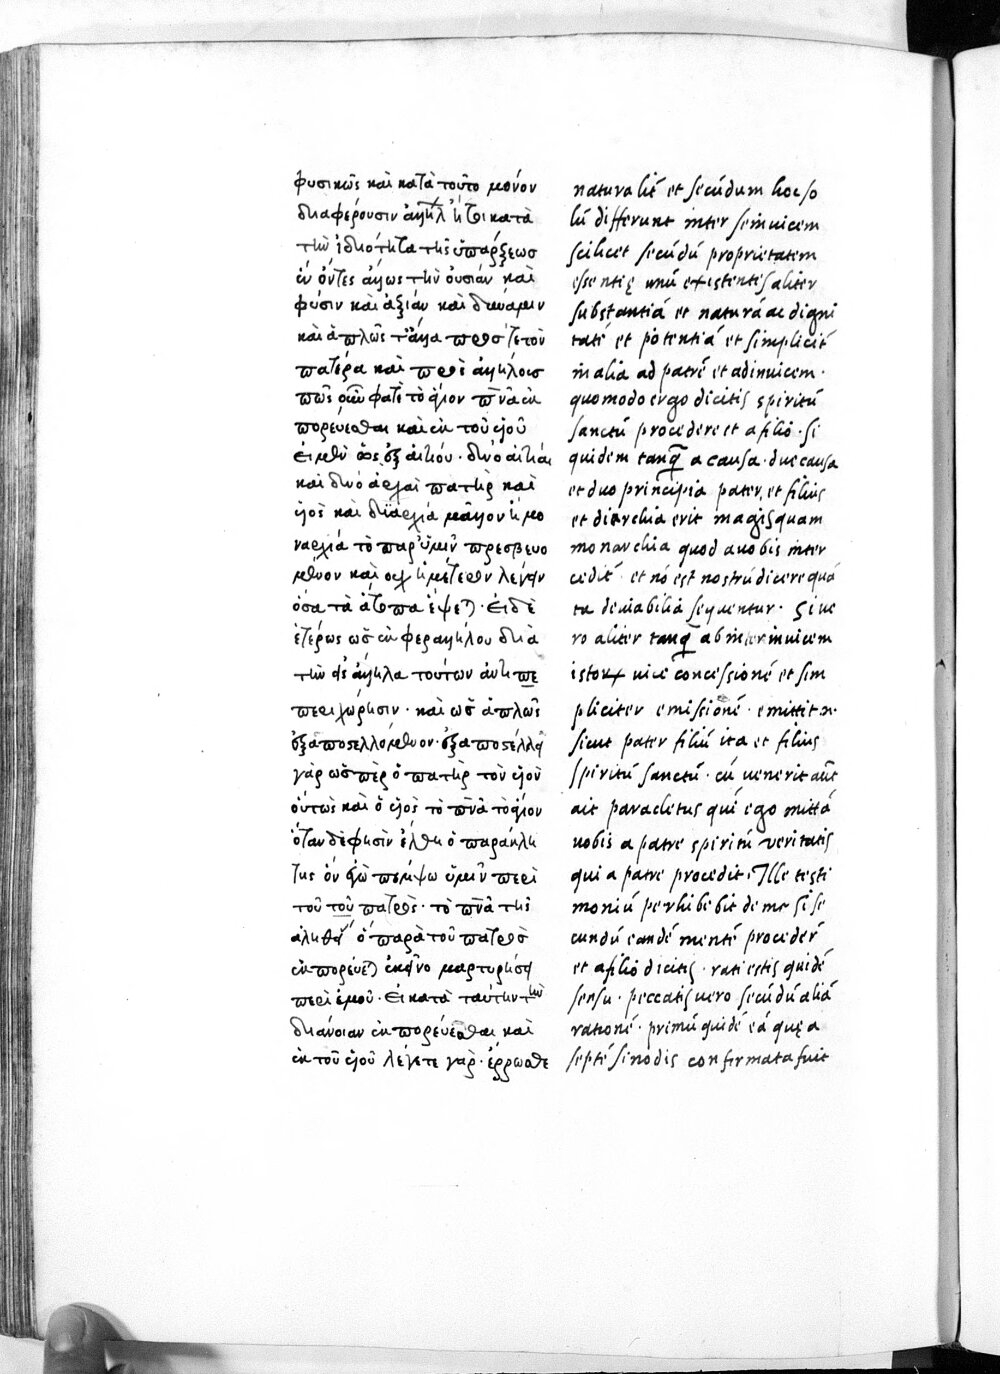 φυσικῶς καὶ κατὰ τοῦτο μόνον
διαφέρουσιν ἀλλήλ ἤτοι κατὰ
τὴν ἰδιότητα τῆς ὑπάρξεως
ἓν ὄντες ἄλλως τὴν οὐσίαν καὶ
φύσιν καὶ ἀξίαν καὶ δύναμιν
καὶ ἁπλῶς τἄλλα πρὸς τε τὸν
πατέρα καὶ πρὸς ἀλλήλους
πῶς οὖν φατὲ τὸ ἅγιον π̅ν̅α ἐκ
πορεύεσθαι καὶ ἐκ τοῦ υἱοῦ
εἰ μὲν ὡς ἐξ αἰτίου· δύο αἰτίαι
καὶ δύο ἀρχαὶ πατὴρ καὶ
υἱὸς καὶ διαρχία μᾶλλον ἢ μο
ναρχία τὸ παρ' ὑμῖν πρεσβευο
μένον καὶ οὐχ ἡμέτερον λέγειν
ὅσα τὰ ἄτοπα ἕψεται· εἰ δὲ
ἑτέρως ὡς ἐν φερ ἀλλήλου διὰ
τὴν εἰς ἄλληλα τούτων ἀντιπε
περιχώρησιν· καὶ ὡς ἁπλῶς
ἐξαποστελλόμενον· ἐξαποστέλλει
γὰρ ὥσπερ ὁ πατὴρ τὸν υἱὸν
οὕτως καὶ ὁ υἱὸς τὸ π̅ν̅α τὸ ἅγιον
ὅταν δὲ φησὶν ἔλθη ὁ παράκλη
τος ὃν ἐγὼ πέμψω ὑμῖν περὶ
τοῦ τοῦ πατρὸς· τὸ π̅ν̅α τῆς
ἀληθεί ὃ παρὰ τοῦ πατρὸς
ἐκπορεύεται ἐκεῖνο μαρτυρήσει
περὶ ἐμοῦ· εἰ κατὰ ταύτην τὴν
διάνοιαν ἐκπορεύεσθαι καὶ
ἐκ τοῦ υἱοῦ λέγετε γὰρ· ἔρρωσθε
naturalit̄ et secūdum hoc so
lū differunt inter seinuicem
scilicet secūdū proprietatem
essentię unū existentes aliter
substantiā et naturā ac digni
tatē et potentiā et simplicit̄
in alia ad patrē et adinuicem·
quomodo ergo dicitis spiritū
sanctū procedere et a filio· si
quidem tanq̄ a causa· due causa
et duo principia pater, et filius
et diarchia erit magis quam
monarchia quod a uobis inter
ceditˉ et nō est nostrū dicere quā
ta deuiabilia sequentur· Si ue
ro aliter tanq̄ ab inter inuicem
istorꝝ uicē concessionē et sim
pliciter emissionē· emittit n·
sicut pater filiū ita et filius
spiritū sanctū· cū uenerit aūt
ait paracletus quē ego mittā
uobis a patre spiritū veritatis
qui a patre procedit· Ille testi
moniū perhibebit de me si se
cundū eandē mentē proceder̄
et a filio dicitis· rati estis quidē
sensu· peccatis uero secūdū aliā
rationē· primū quidē eā quę a
septē sinodis confirmata fuit